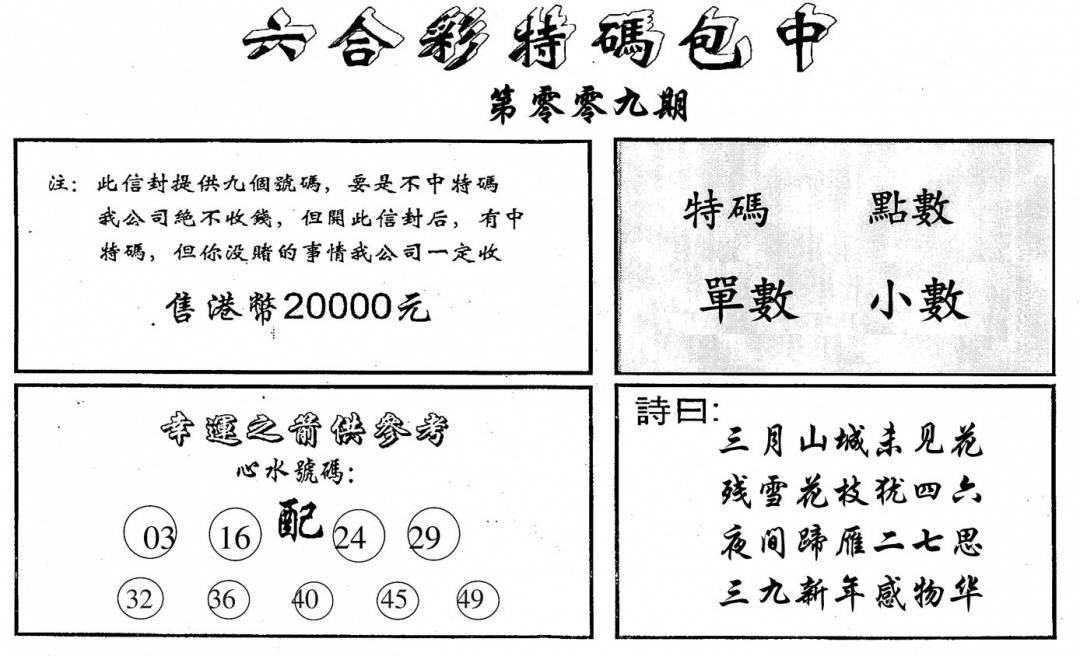 六合彩特碼包中
第零零九期
注：此信封提供九個號碼，要是不中特碼
我公司絕不收錢，但開此信封后，有中
特碼，但你没賭的事情我公司一定收
售港幣20000元
特碼 點數
單數 小數
幸運之箭供參考
心水號碼：
03 16 配 24 29
32 36 40 45 49
詩曰：
三月山城未见花
残雪花枝犹四六
夜间蹄雁二七思
三九新年感物华